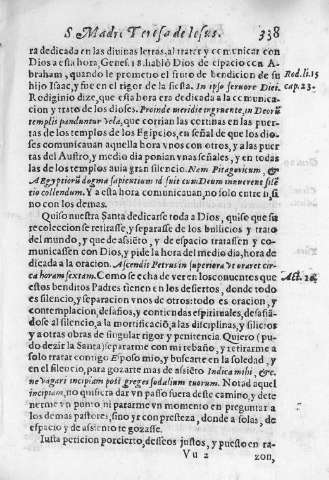 S. Madre Teresa de Iesus. 338
ra dedicada en las diuinas letras, al tratar y comunicar con
Dios a esta hora, Genes. 18. habló Dios de espacio con A-
braham, quando le prometio el fruto de bendicion de su
hijo Isaac, y fue en el rigor de la siesta. In ipso feruore Diei. Rod. li. 15
Rodiginio dize, que esta hora era dedicada a la comunica- cap. 23.
cion y trato de los dioses. Proinde meridie ingruente, in Deorũ
templis panduntur vela, que corrian las cortinas en las puer-
tas de los templos de los Egipcios, en señal de que los dio-
ses comunicauan aquella hora vnos con otros, y a las puer
tas del Austro, y medio dia ponian vnas señales, y en todas
las de los templos auia gran silencio. Nam Pitagoricum, &
Ægyptiorũ dogma sapientum id fuit cum Deum inuenere silẽ
tio collendum. Y a esta hora comunicauan no solo entre si, si
no con los demas.
Quiso nuestra Santa dedicarse toda a Dios, quise que su
recoleccion se retirasse, y separasse de los bullicios y trato
del mundo, y que de assiẽto, y de espacio tratassen y co-
municassen con Dios, y pide la hora del medio dia, hora de
dicada a la oracion. Ascendit Petrus in superiora vt oraret cir-
ca horam sextam. Como se echa de ver en los conuentos que Act. 10.
estos benditos Padres tienen en los desiertos, donde todo
es silencio, y separacion vnos de otros: todo es oracion, y
contemplacion, desafios, y contiendas espirituales, desafiã-
dose al silencio, a la mortificaciõ, a las disciplinas, y silicios
y a otras obras de singular rigor y penitencia. Quiero (pu-
do dezir la Santa) separarme con mi rebaño, y retirarme a
solo tratar contigo Esposo mio, y buscarte en la soledad, y
en el silencio, para gozarte mas de assiẽto Indica mihi, &c.
ne vagari incipiam post greges sodalium tuorum. Notad aquel
incipiam, no quisiera dar vn passo fuera deste camino, y dete
nerme vn punto ni pararme vn momento en preguntar a
los demas pastores, sino yr con presteza, donde a solas, de
espacio y de assiento te gozasse.
Iusta peticion por cierto, desseos justos, y puesto en ra-
Vu 2 zon,